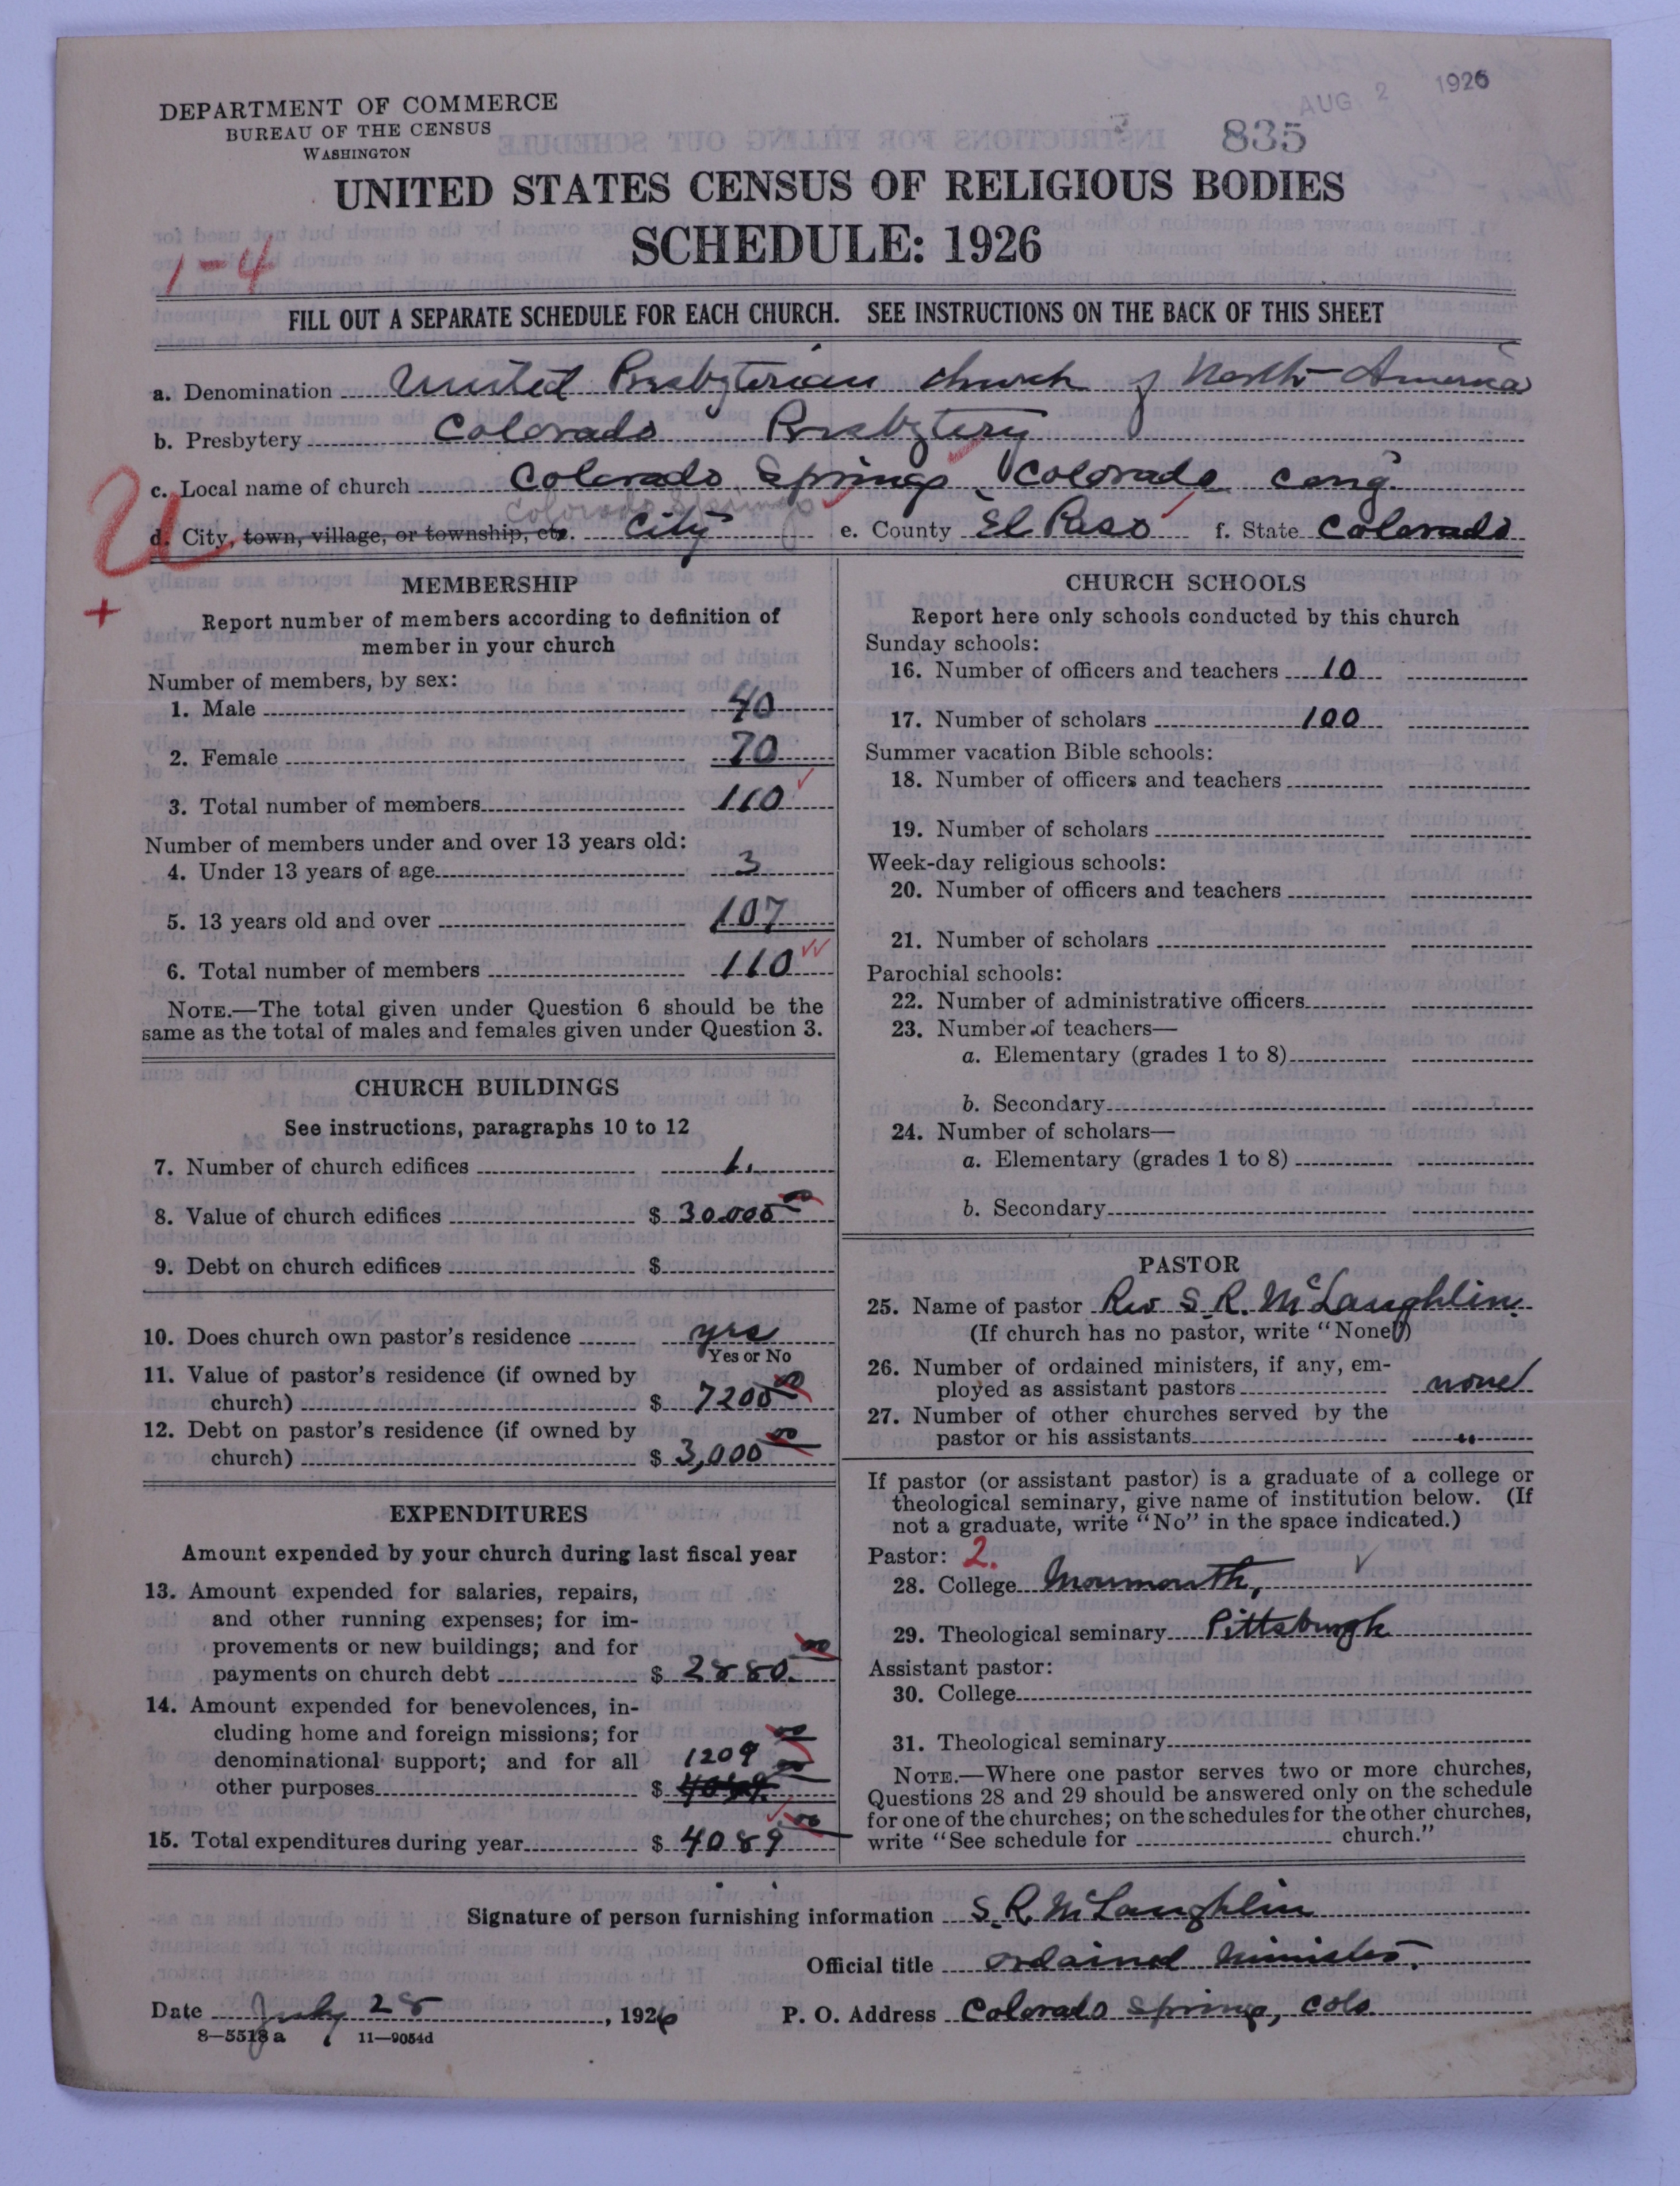 AUG 2 1926
835
DEPARTMENT OF COMMERCE
BUREAU OF THE CENSUS
WASHINGTON
UNITED STATES CENSUS OF RELIGIOUS BODIES
SCHEDULE: 1926
1-4
FILL OUT A SEPARATE SCHEDULE FOR EACH CHURCH. SEE INSTRUCTIONS ON THE BACK OF THIS SHEET
a. Denomination United Presbyterian church of North America
b. Presbytery Colorado Presbytery
c. Local name of church Colorado Springs, Colorado cong.
Colorado Springs
U
d. City, town, village, or township, etc. City e. County El Paso f. State Colorado
+
MEMBERSHIP
Report number of members according to definition of
member in your church
Number of members, by sex:
1. Male 40
2. Female 70
3. Total number of members 110
Number of members under and over 13 years old:
4. Under 13 years of age 3
5. 13 years old and over 107
6. Total number of members 110
NOTE.—The total given under Question 6 should be the
same as the total of males and females given under Question 3.
CHURCH BUILDINGS
See instructions, paragraphs 10 to 12
7. Number of church edifices 1.
8. Value of church edifices $ 30.000 00
9. Debt on church edifices $
10. Does church own pastor's residence yes
Yes or No
11. Value of pastor's residence (if owned by
church) $ 7200 00
12. Debt on pastor's residence (if owned by
church) $ 3,000 00
EXPENDITURES
Amount expended by your church during last fiscal year
13. Amount expended for salaries, repairs,
and other running expenses; for im-
provements or new buildings; and for
payments on church debt $ 2880. 00
14. Amount expended for benevolences, in-
cluding home and foreign missions; for
denominational support; and for all 1209 00
other purposes $ 4089. 00
15. Total expenditures during year $ 4089 00
CHURCH SCHOOLS
Report here only schools conducted by this church
Sunday schools:
16. Number of officers and teachers 10
17. Number of scholars 100
Summer vacation Bible schools:
18. Number of officers and teachers
19. Number of scholars
Week-day religious schools:
20. Number of officers and teachers
21. Number of scholars
Parochial schools:
22. Number of administrative officers
23. Number of teachers—
a. Elementary (grades 1 to 8)
b. Secondary
24. Number of scholars—
a. Elementary (grades 1 to 8)
b. Secondary
PASTOR
25. Name of pastor Rev S. R. McLaughlin.
(If church has no pastor, write "None")
26. Number of ordained ministers, if any, em-
ployed as assistant pastors none
27. Number of other churches served by the
pastor or his assistants "
If pastor (or assistant pastor) is a graduate of a college or
theological seminary, give name of institution below. (If
not a graduate, write "No" in the space indicated.)
Pastor: 2.
28. College Monmouth,
29. Theological seminary Pittsburgh
Assistant pastor:
30. College
31. Theological seminary
NOTE.—Where one pastor serves two or more churches,
Questions 28 and 29 should be answered only on the schedule
for one of the churches; on the schedules for the other churches,
write "See schedule for church."
Signature of person furnishing information S. R. McLaughlin
Official title ordained minister.
Date July 28, 1926 P. O. Address Colorado Springs, Colo.
8-5518 a 11-9054d